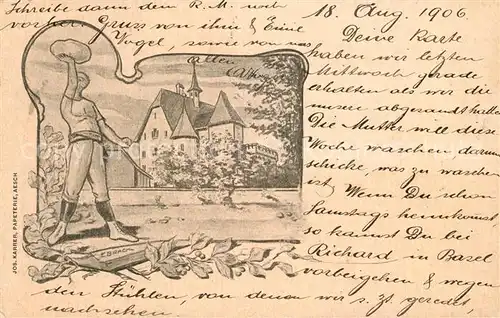 Schreibe dann dem R. M. noch
vorher Gruss von ihm & Emil
Vogel, sowie von uns
allen
18. Aug. 1906
Deine Karte
haben wir letzten
Mittwoch gerade
erhalten als wir die
unsere abgesandt hatten
Die Mutter will diese
Woche waschen darum
schicke, was zu waschen
ist. Wenn Du schon
Samstags heimkommst
so kannst Du bei
Richard in Basel
vorbeigehen & wegen
den Stühlen, von denen wir s. Zt. geredet,
nachsehen.
JOS. KARRER, PAPETERIE, AESCH